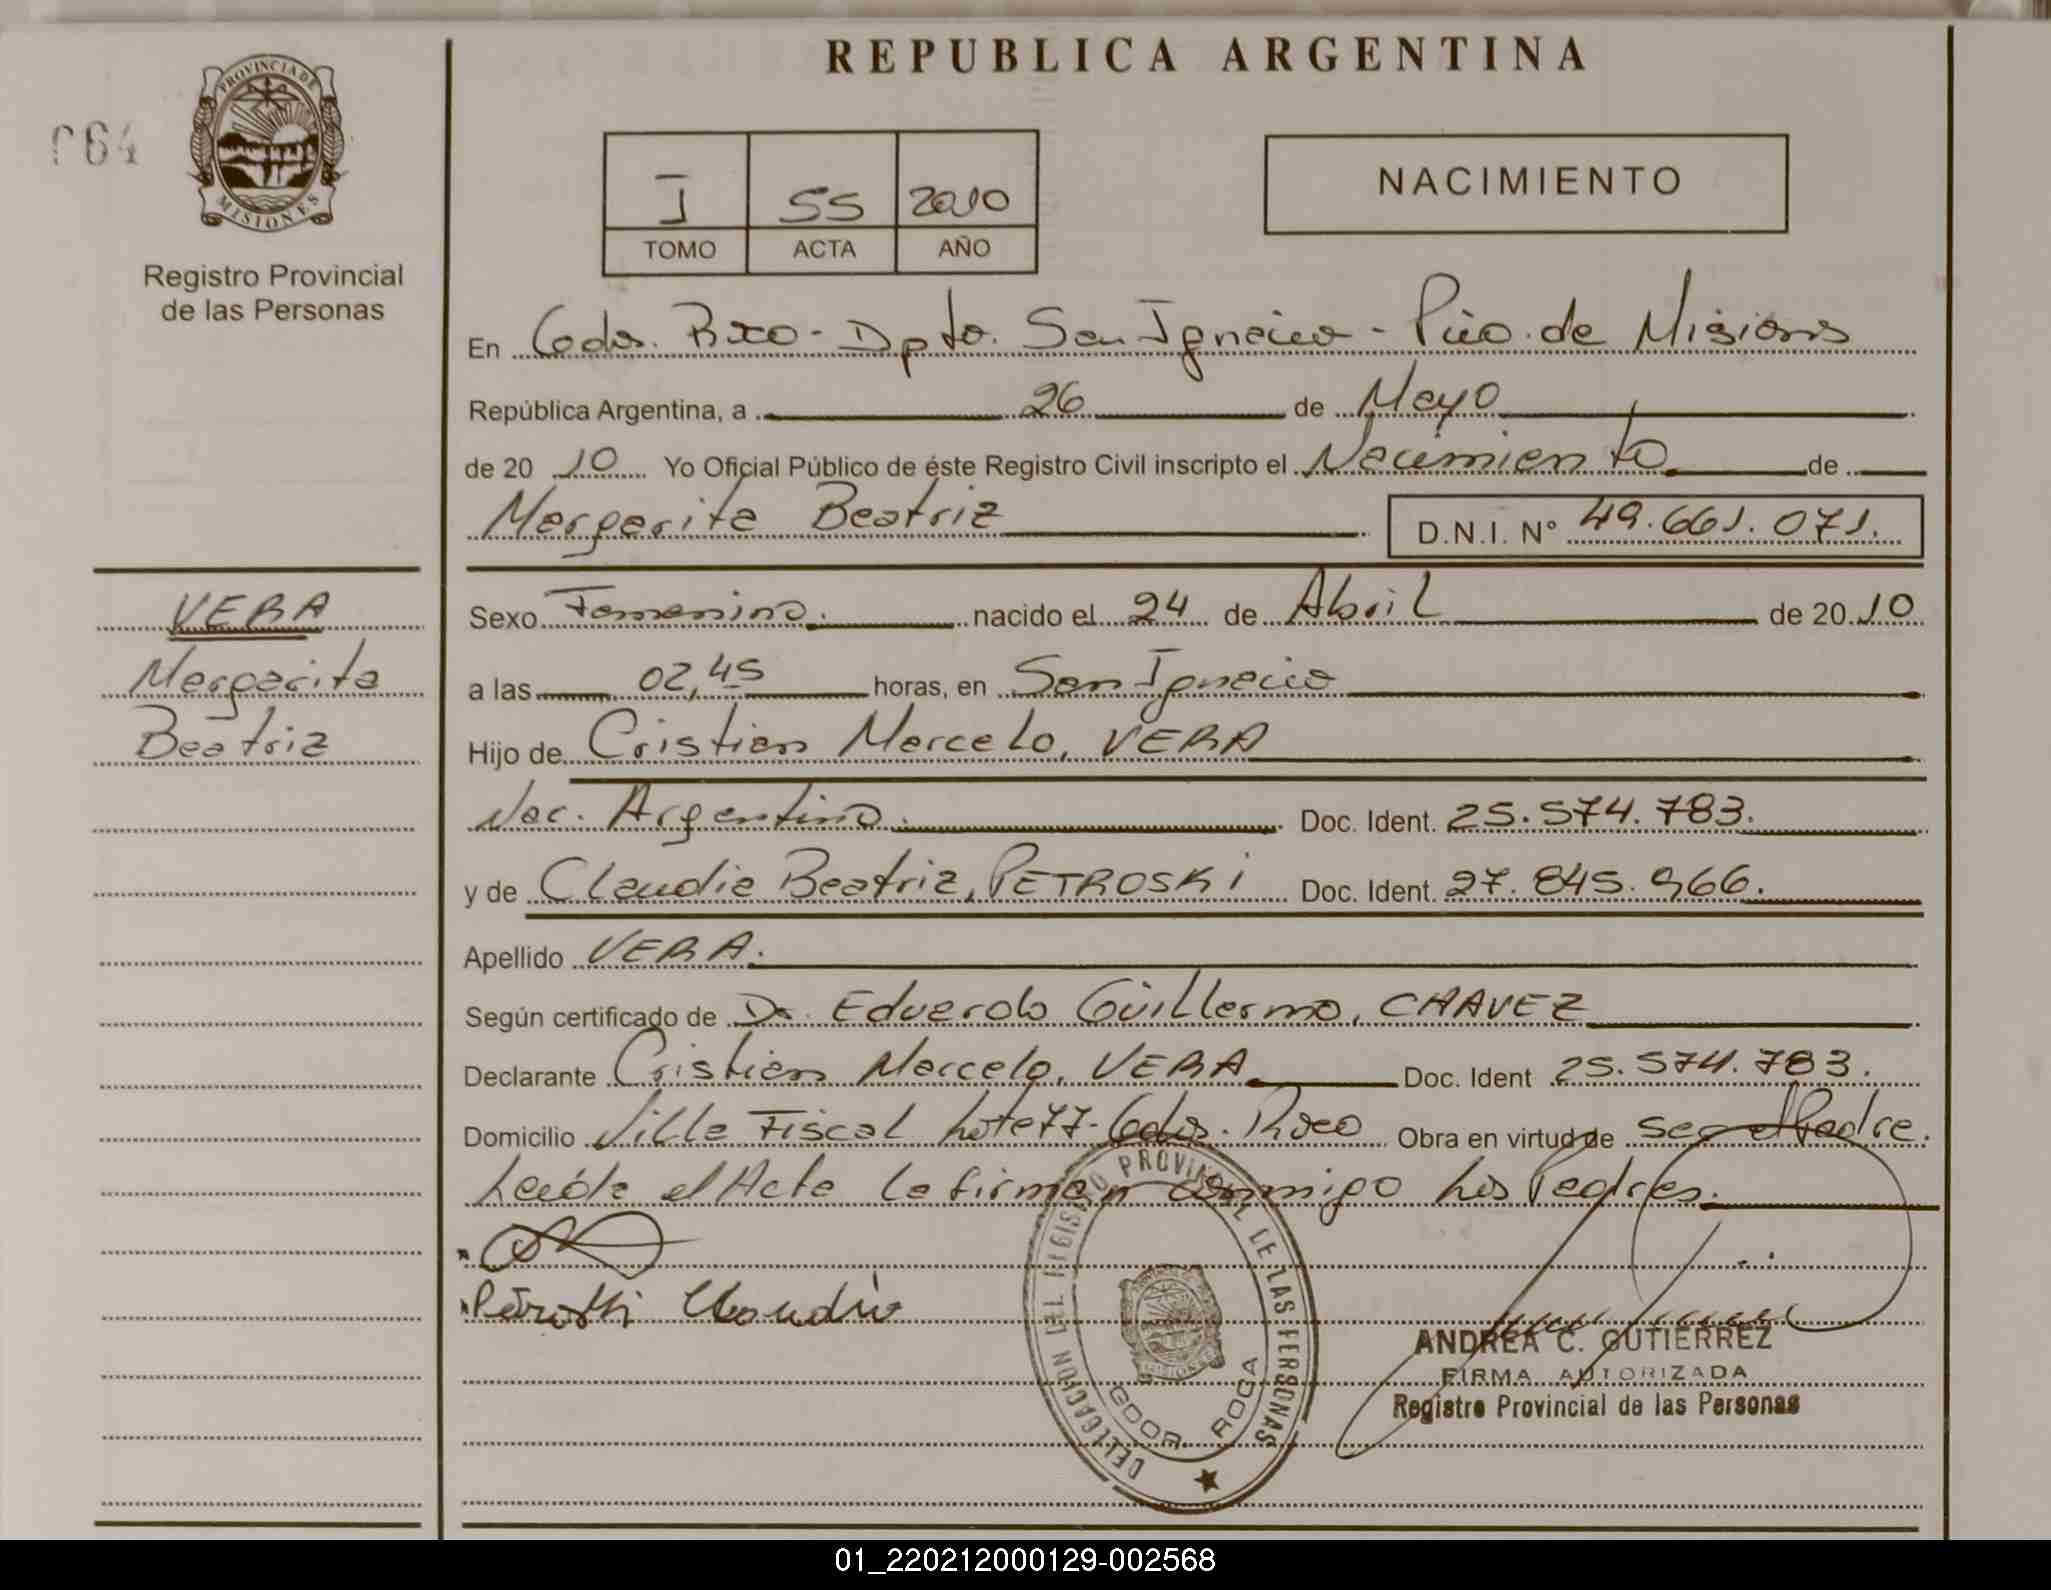 REPUBLICA ARGENTINA
064
PROVINCIA DE
MISIONES
Registro Provincial
de las Personas
I 55 2010
TOMO ACTA AÑO
NACIMIENTO
En Gdor. Roca - Dpto. San Ignacio - Pcia. de Misiones
República Argentina, a 26 de Mayo
de 20 10 Yo Oficial Público de éste Registro Civil inscripto el Nacimiento de
Margarita Beatriz D.N.I. N° 49.661.071.
VERA
Margarita
Beatriz
Sexo Femenino. nacido el 24 de Abril de 20 10
a las 02,45 horas, en San Ignacio
Hijo de Cristian Marcelo, VERA
Nac. Argentino. Doc. Ident. 25.574.783.
y de Claudia Beatriz, PETROSKI Doc. Ident. 27.845.966.
Apellido VERA.
Según certificado de Dr. Eduardo Guillermo, CHAVEZ
Declarante Cristian Marcelo, VERA Doc. Ident 25.574.783.
Domicilio Villa Fiscal Lote 77 - Gdor. Roca Obra en virtud de ser el Padre.
Leída el Acta la firman conmigo los Padres.
Petroski Claudia
DELEGACION DEL REGISTRO PROVINCIAL DE LAS PERSONAS
GDOR. ROCA
ANDREA C. GUTIERREZ
FIRMA AUTORIZADA
Registro Provincial de las Personas
01_220212000129-002568